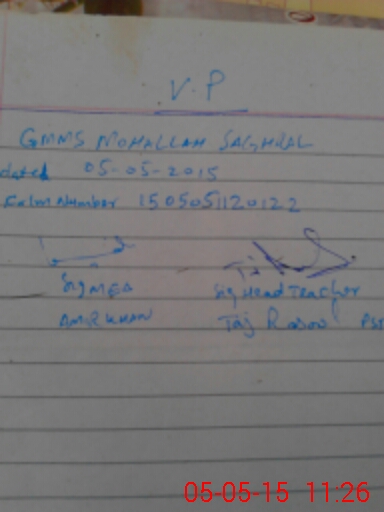 V.P
GMMS MOHALLAH SAGHRAL
dated 05-05-2015
Ealm Number 1505051120122
Sig MEA Sig Head Teacher
AMIR KHAN Taj
05-05-15 11:26